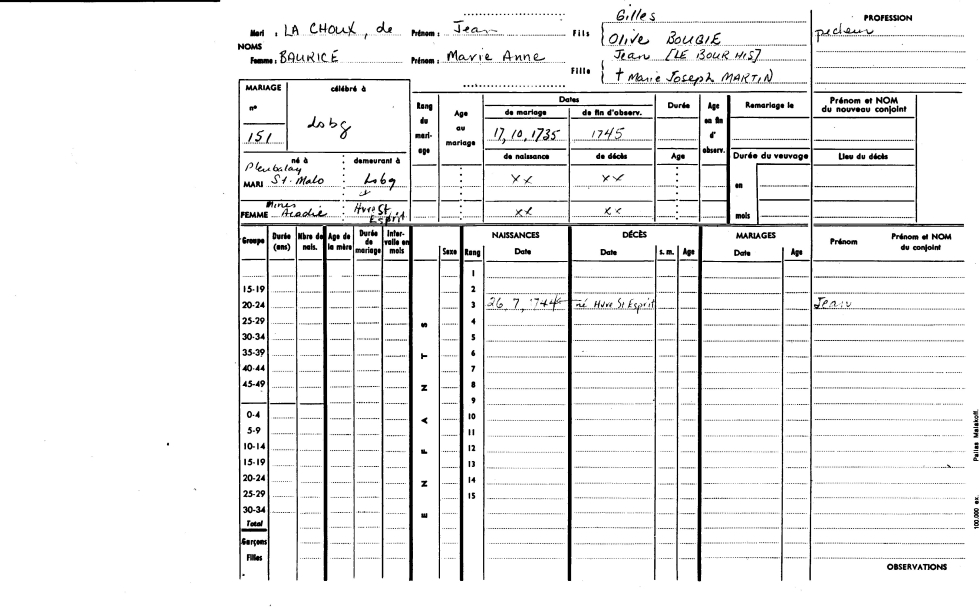 Gilles
PROFESSION
Mari : LA CHOUX, de Prénom : Jean Fils Olive BOUGIE
pecheur
NOMS
Jean [LE BOURHIS]
Femme : BAURICE Prénom : Marie Anne Fille † Marie Joseph MARTIN
MARIAGE célébré à
n° 151 Lsbg
Rang du mariage
Age au mariage
Dates
de mariage de fin d'observ.
17, 10, 1735 1745
de naissance de décès
xx xx
xx xx
Durée
Age
Age en fin d' observ.
Remariage le
Durée du veuvage
en
mois
Prénom et NOM du nouveau conjoint
Lieu du décès
né à demeurant à
MARI St. Malo Lsbg
+
FEMME Mines Acadie Hvre St Esprit
Groupe Durée (ans) Nbre de nais. Age de la mère Durée de mariage Intervalle en mois
ENFANTS
Sexe Rang
NAISSANCES Date
DÉCÈS Date s. m. Age
MARIAGES Date Age
Prénom Prénom et NOM du conjoint
1
15-19 2
20-24 3 26, 7, 1744 né Hvre St Esprit Jean
25-29 4
30-34 5
35-39 6
40-44 7
45-49 8
9
0-4 10
5-9 11
10-14 12
15-19 13
20-24 14
25-29 15
30-34
Total
Garçons
Filles
OBSERVATIONS
100,000 ex. Pallas Malakoff.